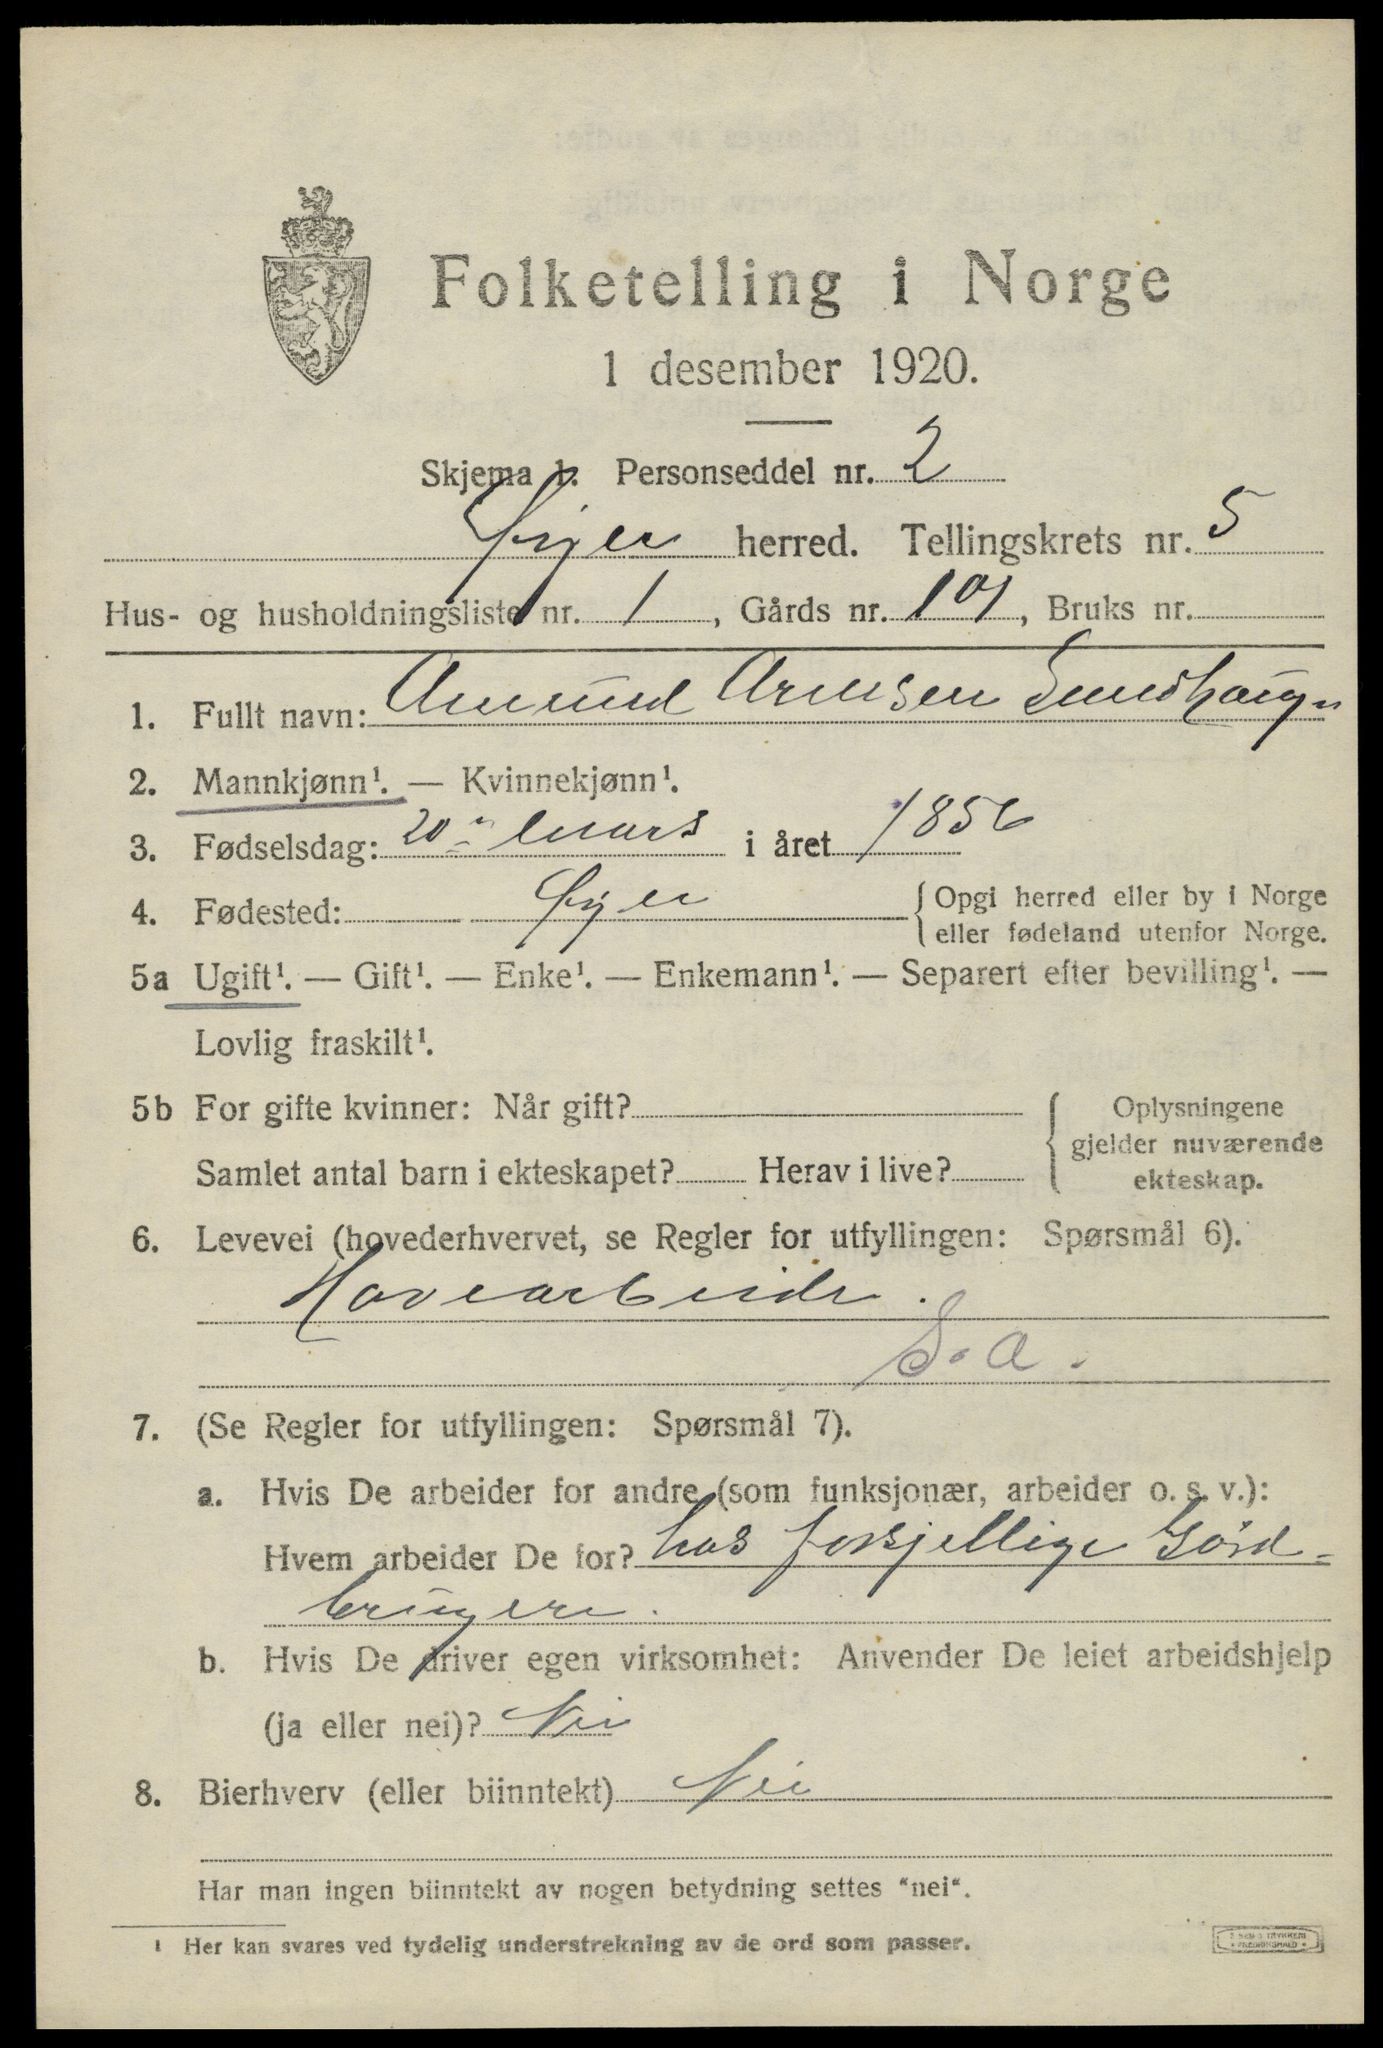 Folketelling i Norge
1 desember 1920.
Skjema 1. Personseddel nr. 2
Øyer herred. Tellingskrets nr. 5
Hus- og husholdningsliste nr. 1, Gårds nr. 101, Bruks nr.
1. Fullt navn: Amund Arnesen
2. Mannkjønn¹. — Kvinnekjønn¹.
3. Fødselsdag: 20de Mars i året 1856
4. Fødested: Øyer {Opgi herred eller by i Norge
eller fødeland utenfor Norge.
5a Ugift¹. — Gift¹. — Enke¹. — Enkemann¹. — Separert efter bevilling¹. —
Lovlig fraskilt¹.
5b For gifte kvinner: Når gift? { Oplysningene
gjelder nuværende
Samlet antal barn i ekteskapet? Herav i live? ekteskap.
6. Levevei (hovederhvervet, se Regler for utfyllingen: Spørsmål 6).
Havearbeide.
S. a.
7. (Se Regler for utfyllingen: Spørsmål 7).
a. Hvis De arbeider for andre (som funksjonær, arbeider o. s. v.):
Hvem arbeider De for? hos forsjellige Gård-
brugere.
b. Hvis De driver egen virksomhet: Anvender De leiet arbeidshjelp
(ja eller nei)? Nei
8. Bierhverv (eller biinntekt) Nei
Har man ingen biinntekt av nogen betydning settes "nei".
¹ Her kan svares ved tydelig understrekning av de ord som passer.